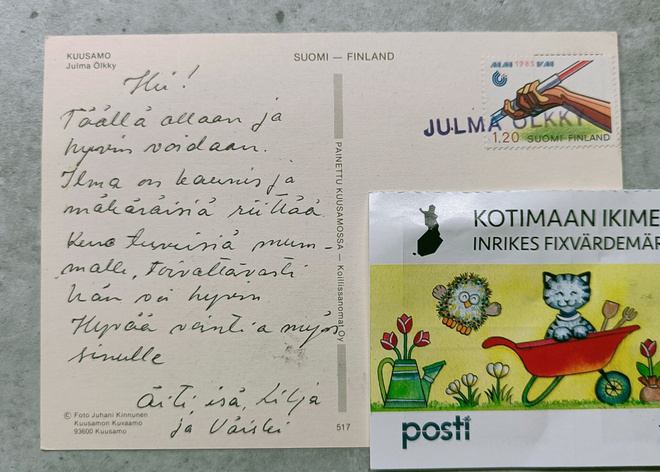 KUUSAMO
Julma Ölkky
SUOMI — FINLAND
Hei!
Täällä ollaan ja
hyvin voidaan.
Ilma on kaunis ja
mäkäräisiä riittää
Kerro terveisiä mum-
malle, toivottavasti
hän voi hyvin
Hyvää vointia myös
sinulle
Äiti, isä, Lilja
ja Väiski
© Foto Juhani Kinnunen
Kuusamon Kuvaamo
93600 Kuusamo
517
PAINETTU KUUSAMOSSA — Koillissanomat Oy
MM 1983 VM
JULMA ÖLKKY
1.20 SUOMI FINLAND
KOTIMAAN IKIME
INRIKES FIXVÄRDEMÄR
posti